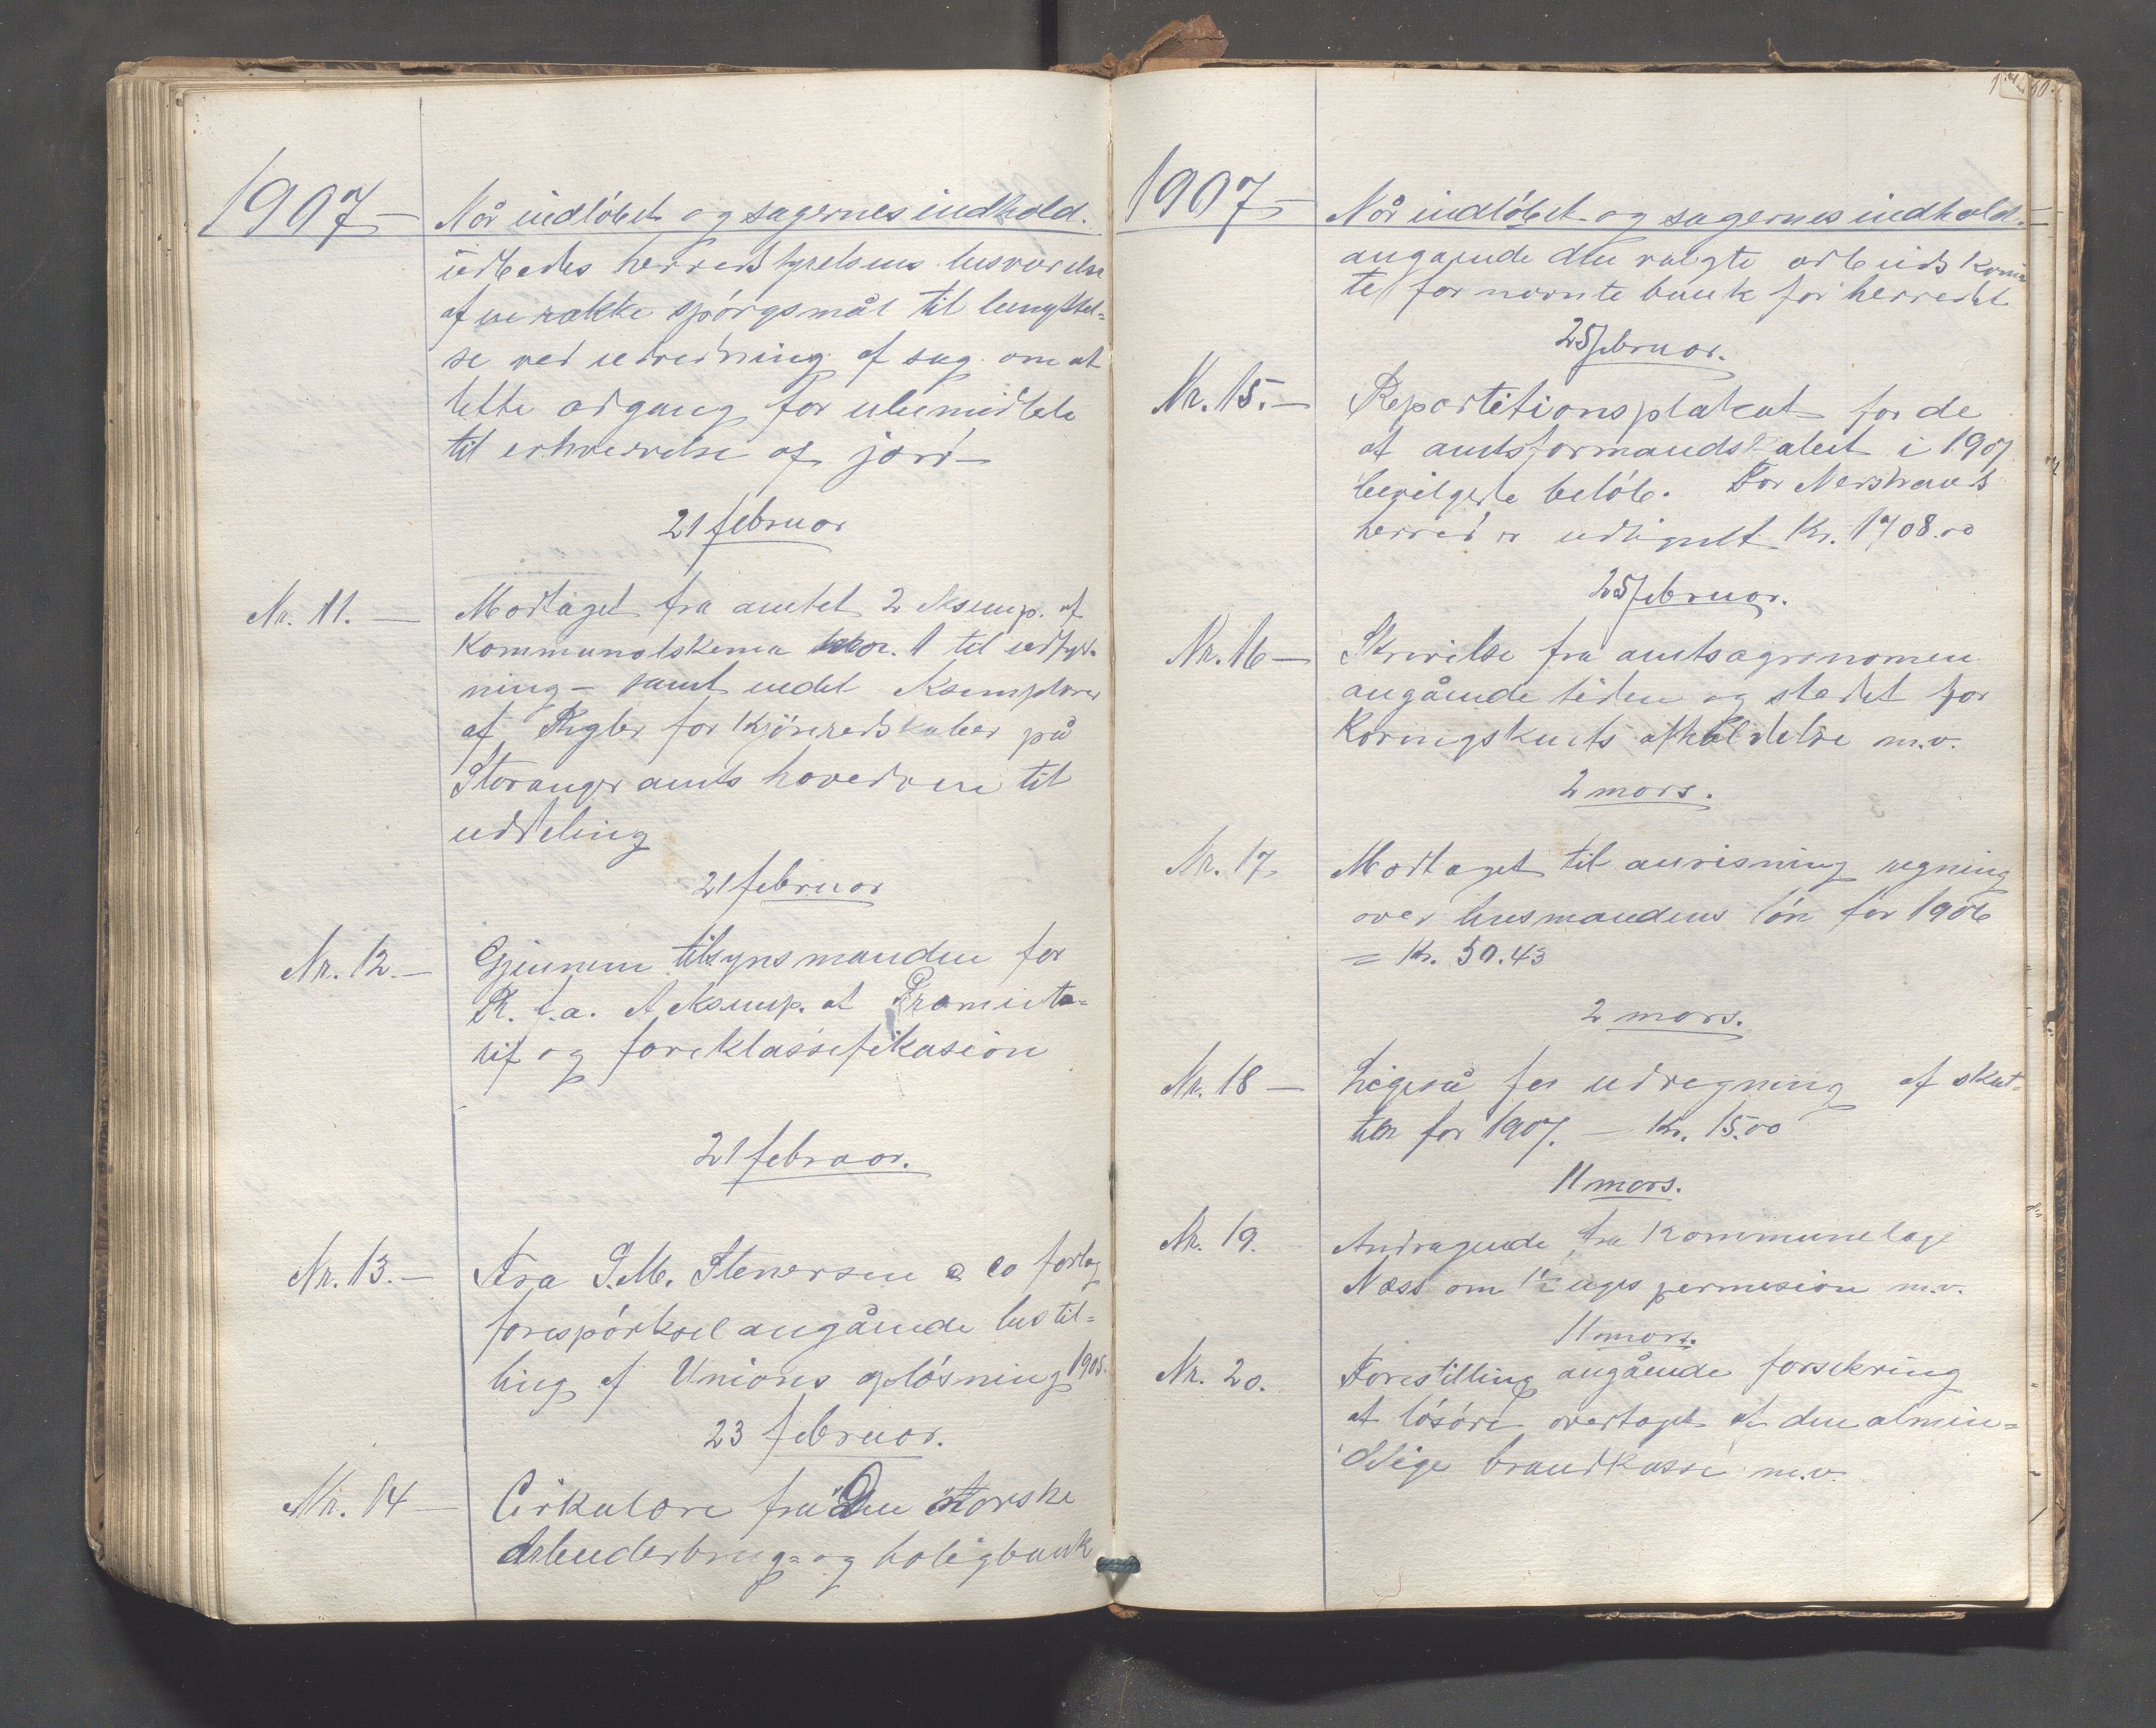 1907 —
Når indløbet og sagernes indhold.
udbedes herredstyrelsens besvarelse
af en række spørgsmål til benyttel=
se ved udredning af sag om at
lette adgang for ubemidlede
til erhvervelse af jord —
21 februar
Nr. 11. — Modtaget fra amtet 2 eksemp. af
Kommunalskema no. 1 til udfyld-
ning — samt endel eksemplarer
af Regler for Kjøreredskaber på
Stavanger amts hovedveie til
uddeling
21 februar
Nr. 12. — Gjennem tilsynsmanden for
R. f. a. 1 eksemp. af Præmieta=
rif og fareklassefikasion
21 februar.
Nr. 13. — Fra J. M. Stenersen & Co forlag
forespørksel angående bestil=
ling af Unions opløsning 1905.
23 februar.
Nr. 14 — Cirkulære fra "Den Norske
Arbeiderbrug= og boligbank
1907 —
Når indløbet og sagernes indhold.
angaaende den valgte arbeidskomi
te for nævnte bank for herredet
25 februar.
Nr. 15. — Repartitionsplakat for de
af amtsformandskabet i 1907
bevilgede beløb. For Nerstrands
herred er udlignet Kr. 1708.00
25 februar.
Nr. 16 — Skrivelse fra amtsagronomen
angående tiden og stedet for
Kåringskuets afholdelse m.v.
2 mars.
Nr. 17. Modtaget til anvisning regning
over husmandens løn for 1906
= Kr. 50.43
2 mars.
Nr. 18 — Ligeså for udregning af skat=
ten for 1907. — Kr. 15.00
11 mars.
Nr. 19. Andragende fra Kommunelæge
Næss om 1½ uges permision m.v.
11 mars.
Nr. 20. Forestilling angående forsikring
af løsøre overtaget af den almin=
delige brandkasse m.v.